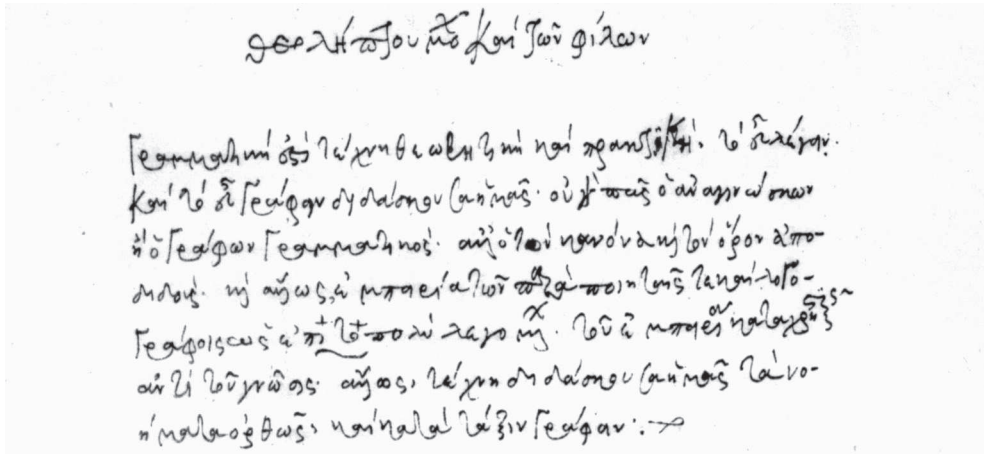 καὶ τῶν φίλων
Γραμματική ἐστι τέχνη θεωρητικὴ καὶ πρακτικὴ, τὸ εὖ λέγειν·
καὶ τὸ εὖ γράφειν διδάσκουσα ἡμᾶς· οὐ γὰρ πᾶς ὁ ἀναγινώσκων
ἢ ὁ γράφων γραμματικός· ἀλλ' ὁ τὸν κανόνα καὶ τὸν ὅρον ἀπο-
διδούς· καὶ ἄλλως, ἐμπειρία τῶν παρὰ ποιηταῖς τε καὶ λογο-
γράφοις ὡς ἐπὶ τὸ πολὺ λεγομένων· τοῦ ἐμπειρία
ἀντὶ τοῦ γνῶσις· ἄλλως, τέχνη διδάσκουσα ἡμᾶς τὰ νο-
ήματα ὀρθῶς, καὶ κατὰ τάξιν γράφειν :